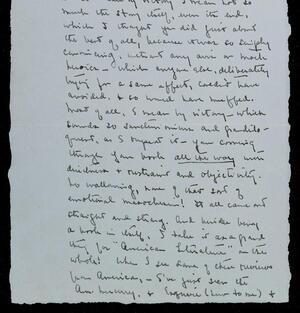 by victory I mean not so
much the story itself, even the end,
which I thought you did just about
the best of all, because it was so simply
convincing, without any airs or mock
heroics – which anyone else, deliberately
trying for a same effect, couldn't have
avoided, & so would have muffed.
Most of all, I mean by victory – which
sounds so and grandilo-
quent, as I repeat it – your coming
through your book all the way with
directness & restraint and objectivity.
No wallowing, none of that sort of
emotional masochism! It all came out
straight and strong. And besides being
a book in itself, I take it as a good
thing for "American Literature" on the
whole! When I see some of these reviews
from America, – I've just seen the
Am. Mercury, & Esquire (new to me) &